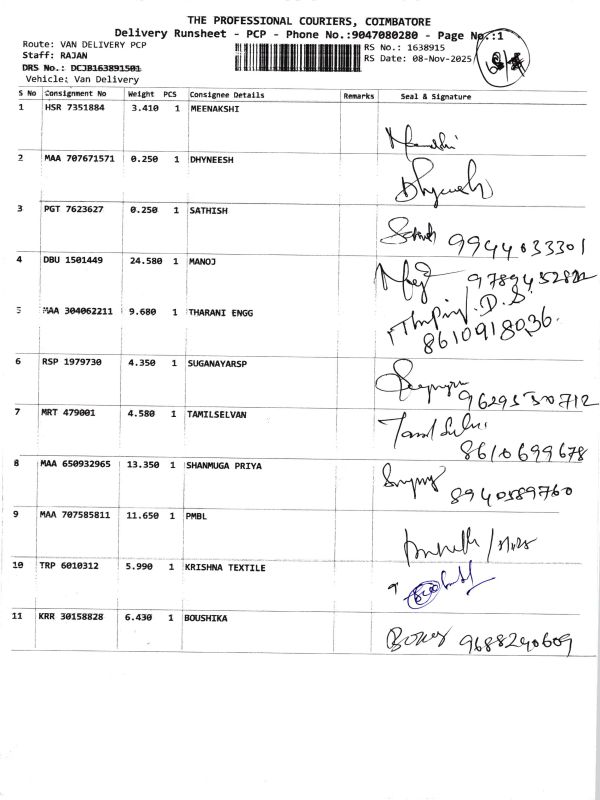 THE PROFESSIONAL COURIERS, COIMBATORE
Delivery Runsheet - PCP - Phone No.:9047080280 - Page No.:1
Route: VAN DELIVERY PCP
Staff: RAJAN
DRS No.: DCJB163891501
Vehicle: Van Delivery
RS No.: 1638915
RS Date: 08-Nov-2025
S No Consignment No Weight PCS Consignee Details Remarks Seal & Signature
1 HSR 7351884 3.410 1 MEENAKSHI
2 MAA 707671571 0.250 1 DHYNEESH
Dhyneesh
3 PGT 7623627 0.250 1 SATHISH
Sathish 9944033301
4 DBU 1501449 24.580 1 MANOJ
5 MAA 304062211 9.680 1 THARANI ENGG
8610918036.
6 RSP 1979730 4.350 1 SUGANAYARSP
9629530712
7 MRT 479001 4.580 1 TAMILSELVAN
8610699678
8 MAA 650932965 13.350 1 SHANMUGA PRIYA
8940589760
9 MAA 707585811 11.650 1 PMBL
10 TRP 6010312 5.990 1 KRISHNA TEXTILE
11 KRR 30158828 6.430 1 BOUSHIKA
9688240609